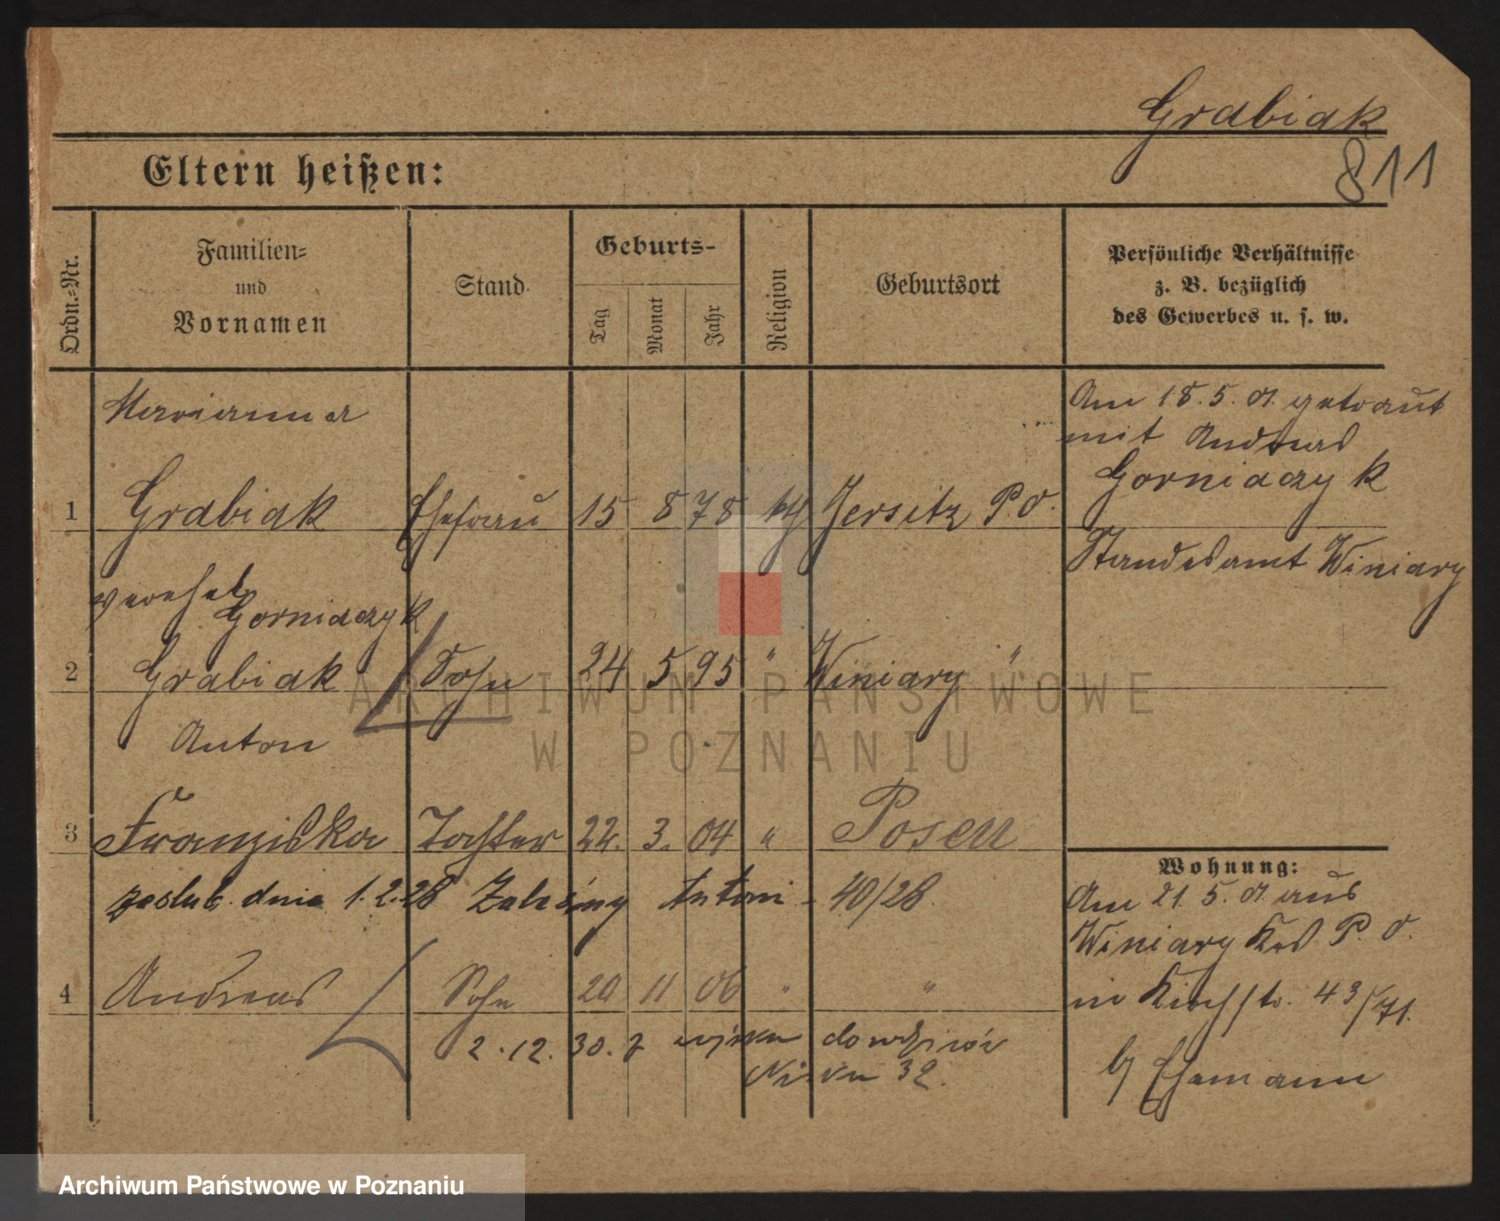 Grabiak
811
Eltern heißen:
Ordn.-Nr.
Familien-
und
Vornamen
Stand
Geburts-
Tag
Monat
Jahr
Religion
Geburtsort
Persönliche Verhältnisse
z. B. bezüglich
des Gewerbes u. s. w.
Marianna
1 Grabiak Ehefrau 15 8 78 kth Jersitz P. O.
Am 18. 5. 01 getraut
mit Andreas
Gorniaczyk
Standesamt Winiary
verehel.
Gorniaczyk
2 Grabiak Sohn 24 5 95 " Winiary "
Anton
3 Franziska Tochter 22. 3. 04 " Posen
zaslub. dnia 1.2.28 Antoni - 40/28.
4 Andreas Sohn 20 11 06 " "
2. 12. 30. z dowdziwór
32.
Wohnung:
Am 21. 5. 01 aus
Winiary Krs P. O.
in Kirchstr. 43/71.
b/ Ehemann
ARCHIWUM PAŃSTWOWE
W POZNANIU
Archiwum Państwowe w Poznaniu